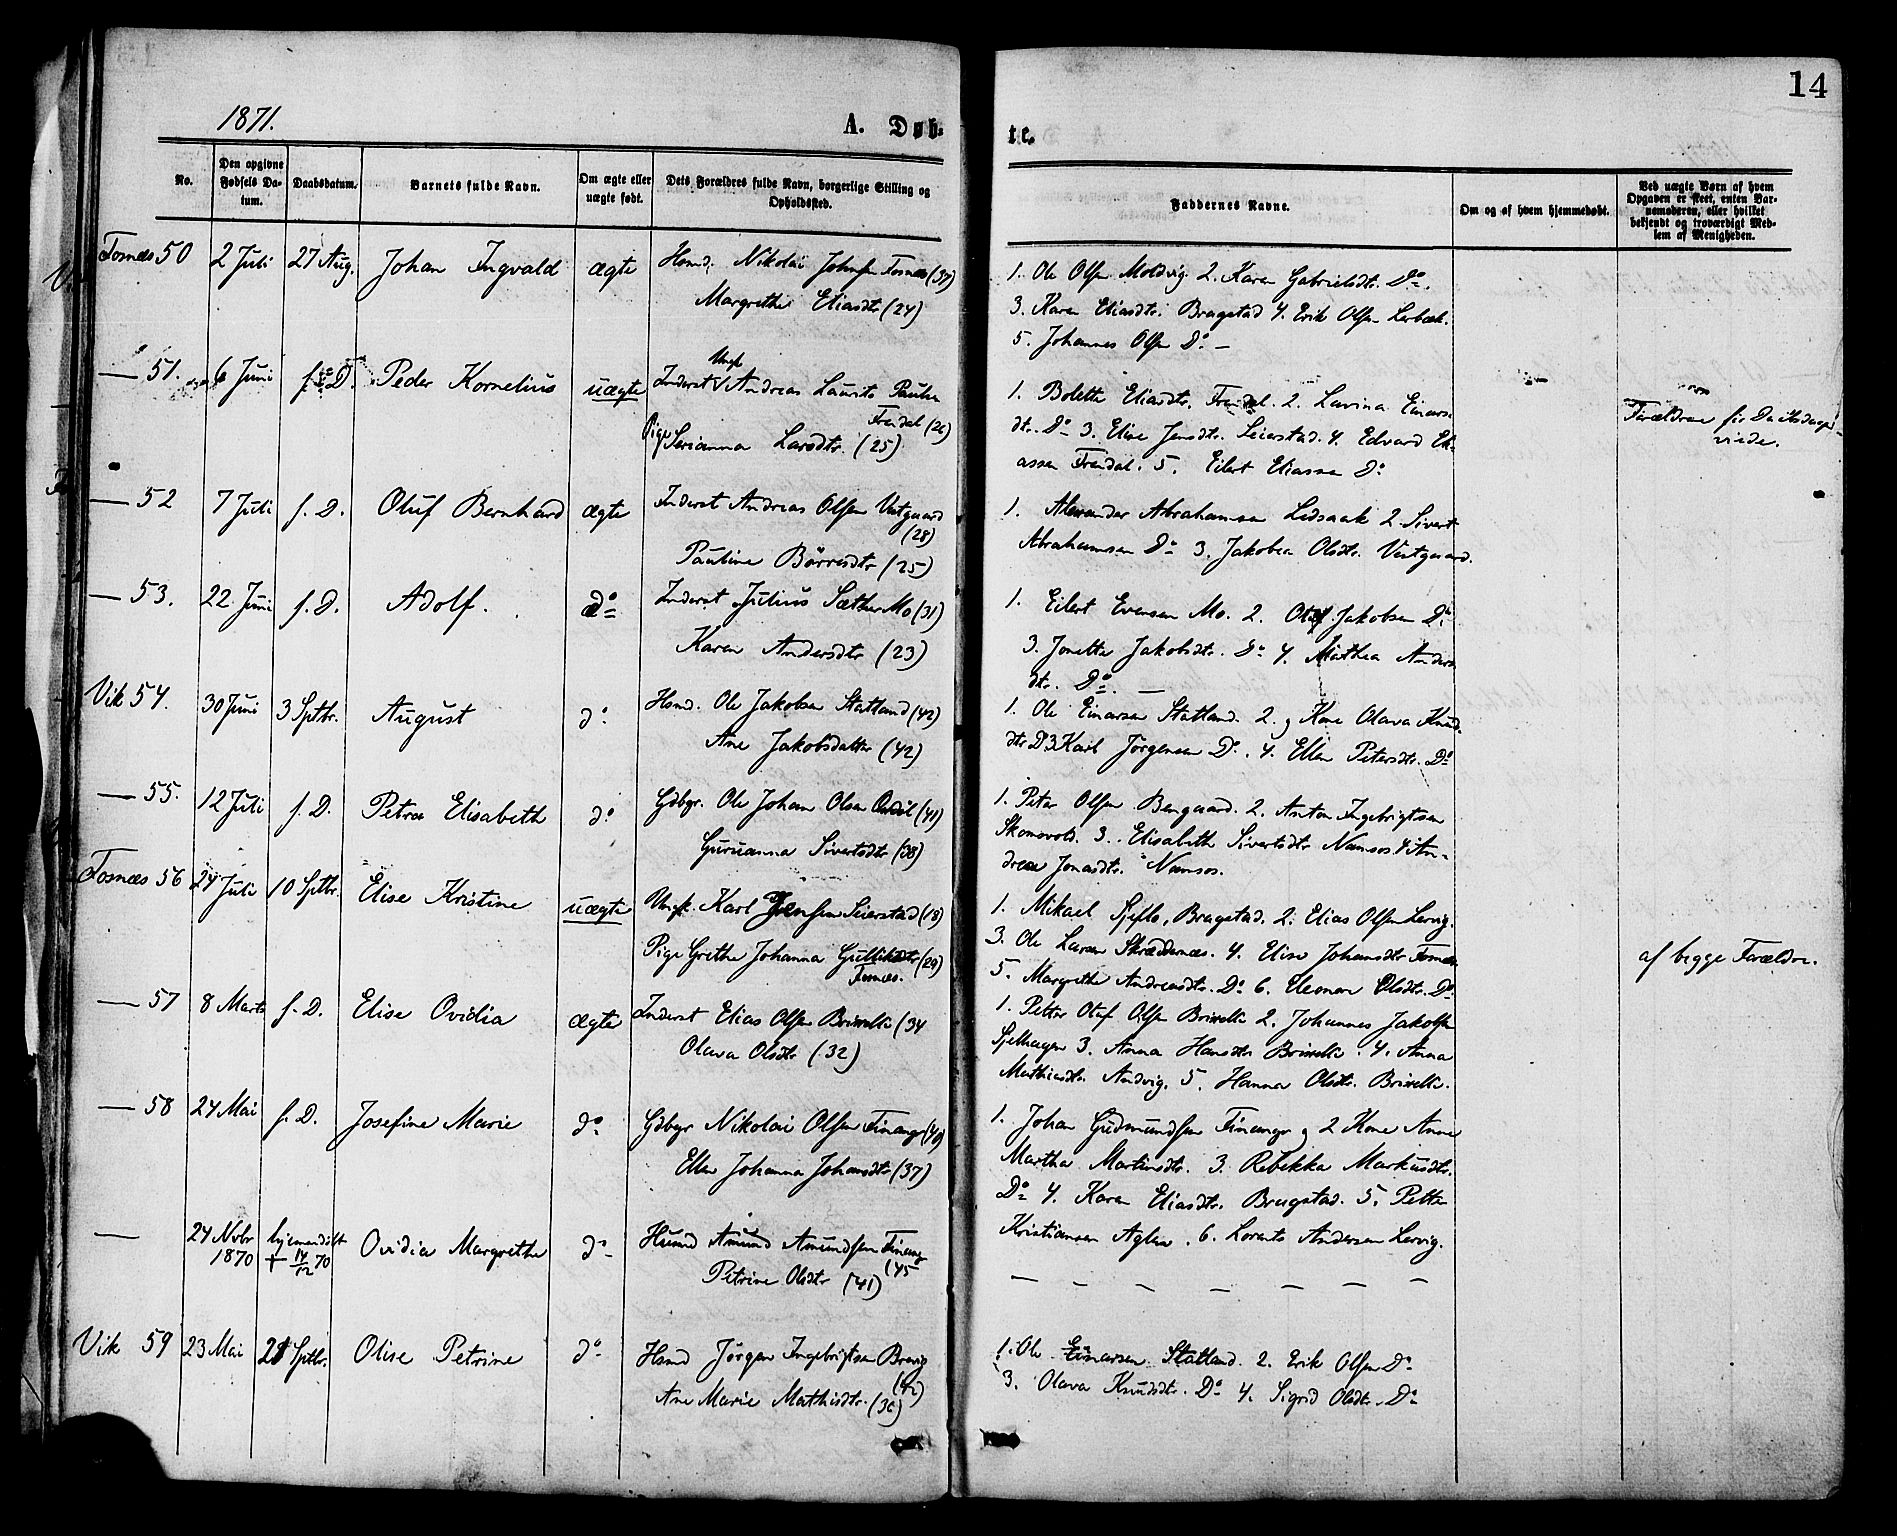 14
1871.
A. Døb-
te.
No.
Den opgivne Fødsels Da-tum.
Daabsdatum.
Barnets fulde Navn.
Om ægte eller uægte født.
Dets Forældres fulde Navn, borgerlige Stilling og Opholdssted.
Faddernes Navne.
Om og af hvem hjemmedøbt.
Ved uægte Børn af hvem Opgaven er skeet, enten Bar-nemoderen, eller hvilket bekjendt og troværdigt Med-lem af Menigheden.
Fosnæs 50 2 Juli 27 Aug. Johan Ingvald ægte Hsmd. Nikolai Johnsen Fosnæs (37)
Margrethe Eliasdtr (24)
1. Ole Olsen Moldvig. 2. Karen Gabrielsdtr. Do.
3. Karen Eliasdtr. Bragstad 4. Erik Olsen Lerbæk.
5. Johannes Olsen Do. —
— 51. 6 Juni s. D. Peder Kornelius uægte Inderst Ungk. Andreas Laurits Paulsen
Frendal (26)
Pige Serianna Larsdtr. (25)
1. Bolette Eliasdtr. Frendal. 2. Lavina Einars-
dtr. Do 3. Elise Jensdtr. Seierstad. 4. Edvard Eli-
assen Frendal. 5. Eilert Eliassen Do
Forældrene før Daabsdagen
viede.
— 52 7 Juli s. D. Oluf Bernhard ægte Inderst Andreas Olsen Vestgaard
(28)
Pauline Börresdtr (25)
1. Alexander Abrahamsen Ledsaak 2. Sivert
Abrahamsen Do 3. Jakobea Olsdtr. Vestgaard.
— 53. 22 Juni s. D. Adolf. do Inderst Julius Sæther Mo (31)
Karen Andersdtr (23)
1. Eilert Evensen Mo. 2. Olaf Jakobsen Do.
3. Jonetta Jakobsdtr. Do 4. Mathea Anders
dtr. Do. —
Vik 54. 30 Juni 3 Septbr. August do Hsmd. Ole Jakobsen Statland (42)
Ane Jakobsdatter (42)
1. Ole Einarsen Statland. 2. og Kone Olava Knud-
dtr Do 3 Karl Jörgensen Do. 4. Ellen Petersdtr. Do
— 55. 12 Juli s. D. Petra Elisabeth do Gdbgr. Ole Johan Olsen (41)
Guruanna Sivertsdtr (38)
1. Peter Olsen Bengaard. 2. Anton Ingebrigtsen
Skomovold. 3. Elisabeth Sivertsdtr Namsos 4 An-
drea Jonasdtr. Namsos.
Fosnæs 56 24 Juli 10 Septbr. Elise Kristine uægte Ungk. Karl Jensen Seierstad (18)
Pige Grethe Johanna Gulliksdtr (29)
Fosnæs.
1. Mikael Sjeflo, Bragstad. 2. Elias Olsen Lervig.
3. Ole Larsen Skrædernæs. 4. Elise Johansdtr Fosnæs
5. Margrethe Andreasdtr. Do 6. Eleonore Olsdtr. Do
af begge Forældre.
— 57 8 Marts s. D. Elise Ovidia ægte Inderst Elias Olsen Brivelli (34
Olava Olsdtr (32)
1. Petter Olaf Olsen Brivelli 2. Johannes Jakobsen
Sjelhagen 3. Anna Hansdtr Brivelli. 4. Anna
Mathiasdtr. Andvig. 5. Hanna Olsdtr. Brivelli.
— 58 24 Mai s. D. Josefine Marie do Gdbgr Nikolai Olsen Finanger (40)
Ellen Johanna Johansdtr (37)
1. Johan Gudmundsen Finanger og 2 Kone Anne
Martha Martinsdtr. 3. Rebekka Markusdtr.
Do 4. Karen Eliasdtr. Bragstad. 5. Petter
Kristiansen Aglen. 6. Lorents Andersen Lervig.
— 24 Novbr 1870 hjemmedøbt + 14/12 70 Ovidia Margrethe do Husmd Amund Amundsen Finanger
(45
Petrine Olsdtr (41)
— — — — — — —
Vik 59 23 Mai 21 Septbr. Olise Petrine do Hsmd Jörgen Ingebrigtsen Brevig
(42)
Ane Marie Mathisdtr. (36)
1. Ole Einarsen Statland. 2. Erik Olsen Do
3. Olava Knudsdtr. Do 4. Sigrid Olsdtr. Do